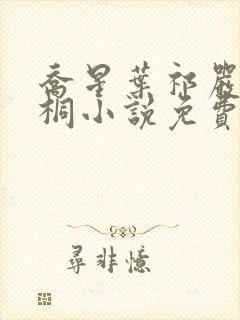 喬星葉祁嚴
桐小說免費
尋非憶